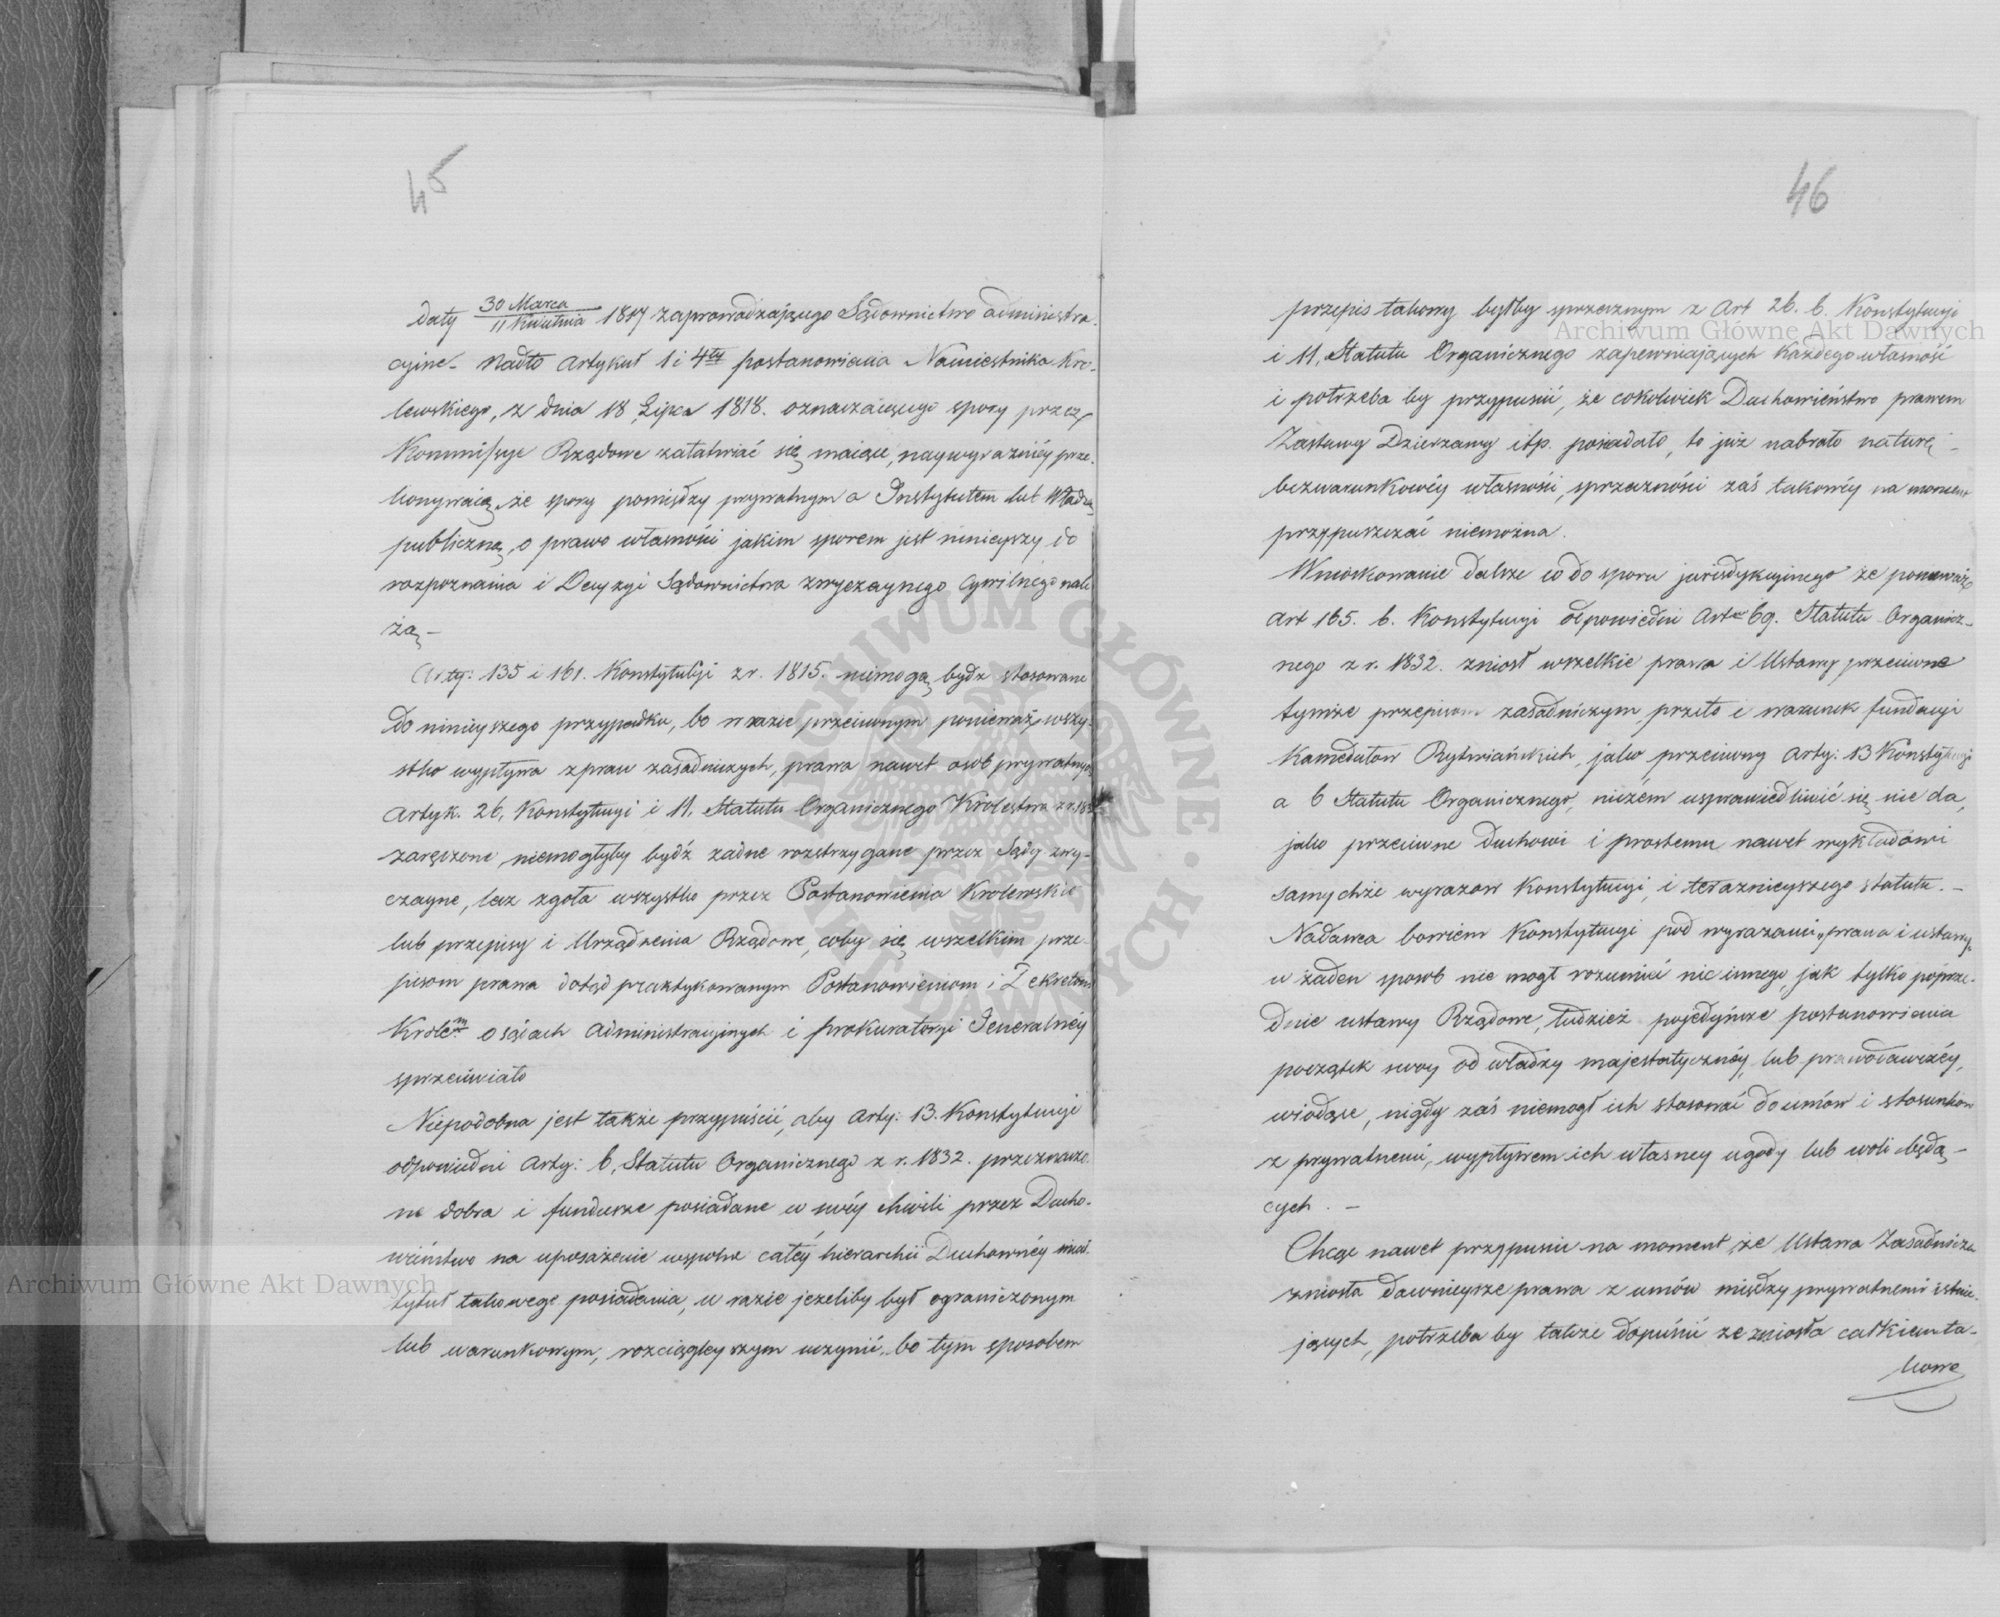 45
daty 30 Marca / 11 Kwietnia 1817 zaprowadzaiącego Sądownictwo administra.
cyine - Nadto Artykuł 1 i 4ty postanowienia Namiestnika Kró-
lewskiego, z dnia 18 Lipca 1818. oznaczaiącego spory przez
Kommissye Rządowe załatwiać się maiące, naywyraźniéy prze-
konywaią, że spory pomiędzy prywatnym a Instytutem lub Władzą
publiczną, o prawo własności jakim sporem jest ninieyszy do
rozpoznania i Decyzyi Sądownictwa zwyczaynego Cywilnego nale
żą -
Arty: 135 i 161. Konstytucyi z r. 1815. niemogą bydź stosowane
do ninieyszego przypadku, bo w razie przeciwnym ponieważ wszy-
stko wypływa z praw zasadniczych, prawa nawet osob prywatnych
Artyk. 26, Konstytucyi i 11, Statutu Organicznego Królestwa z r. 1832
zaręczone, niemogłyby bydź żadne rozstrzygane przez Sądy zwy-
czayne, lecz zgoła wszystko przez Postanowienia Królewskie
lub przepisy i Urządzenia Rządowe, coby się wszelkim prze-
pisom prawa dotąd praktykowanym Postanowieniom i Dekretom
Królem o sądach Administracyjnych i Prokuratoryi Jeneralnéy
sprzeciwiało
Niepodobna jest także przypuścić, aby Arty: 13. Konstytucyi
odpowiedni Arty: 6, Statutu Organicznego z r. 1832. przeznacza.
ne dobra i fundusze posiadane w swéy chwili przez Ducho-
wieństwo na uposażenie wspólne całéy hierarchii Duchownéy miał
tytuł takowego posiadania, w razie jeżeliby był ograniczonym
lub warunkowym, rozciągleyszym uczynić, bo tym sposobem
46
przepis takowy byłby sprzecznym z Art 26. b. Konstytucyi
i 11, Statutu Organicznego zapewniających Każdego własność
i potrzeba by przypuścić, że cokolwiek Duchowieństwo prawem
Zastawy Dzierżawy itp. posiadało, to już nabrało naturę -
bezwarunkowéy własności, sprzeczności zaś takowéy na moment
przypuszczać niemożna.
Wnioskowanie dalsze co do sporu jurisdykcyinego że ponieważ
Art 165. b. Konstytucyi odpowiedni Art 69. Statutu Organicz-
nego z r. 1832. zniosł wszelkie prawa i Ustawy przeciwne
tymże przepisom zasadniczym, przeto i warunek fundacyi
Kamedułów Rytwiańskich, jako przeciwny Arty: 13 Konstytucyi
a 6 Statutu Organicznego, niczem usprawiedliwić się nie da,
jako przeciwne Duchowi i prostemu nawet wykładowi
samychże wyrazów Konstytucyi, i teraznieyszego Statutu. -
Nadawca bowiem Konstytucyi pod wyrazami „prawa i ustawy"
w żaden sposob nie mogł rozumieć nic innego, jak tylko poprze-
dnie ustawy Rządowe, tudzież pojedyńcze postanowienia
początek swoy od władzy majestatycznéy lub prawodawczéy,
wiodące, nigdy zaś niemogł ich stosować do umów i stosunków
z prywatnemi, wypływem ich własney ugody lub woli będą -
cych. -
Chcąc nawet przypuścić na moment, że Ustawa Zasadnicza
zniosła dawnieysze prawa z umów między prywatnemi istnie.
jących, potrzeba by także dopuścić że zniosła całkiem ta-
kowe
Archiwum Główne Akt Dawnych
Archiwum Główne Akt Dawnych
ARCHIWUM GŁÓWNE AKT DAWNYCH